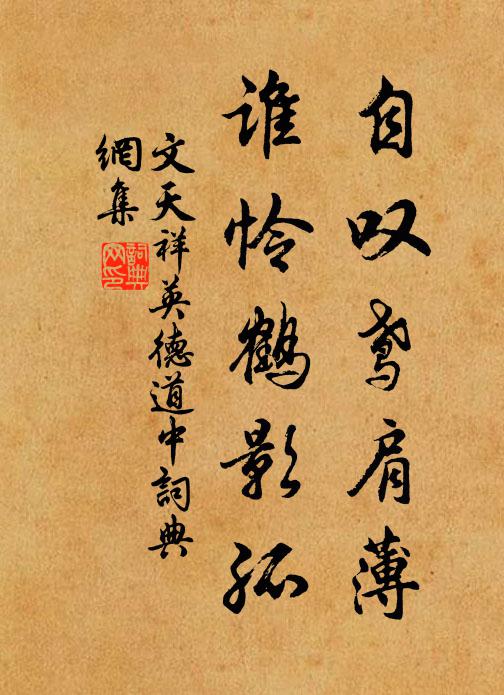 自叹鸢肩薄
谁怜鹤影孤
文天祥英德道中詞典
網集
詞典
网印